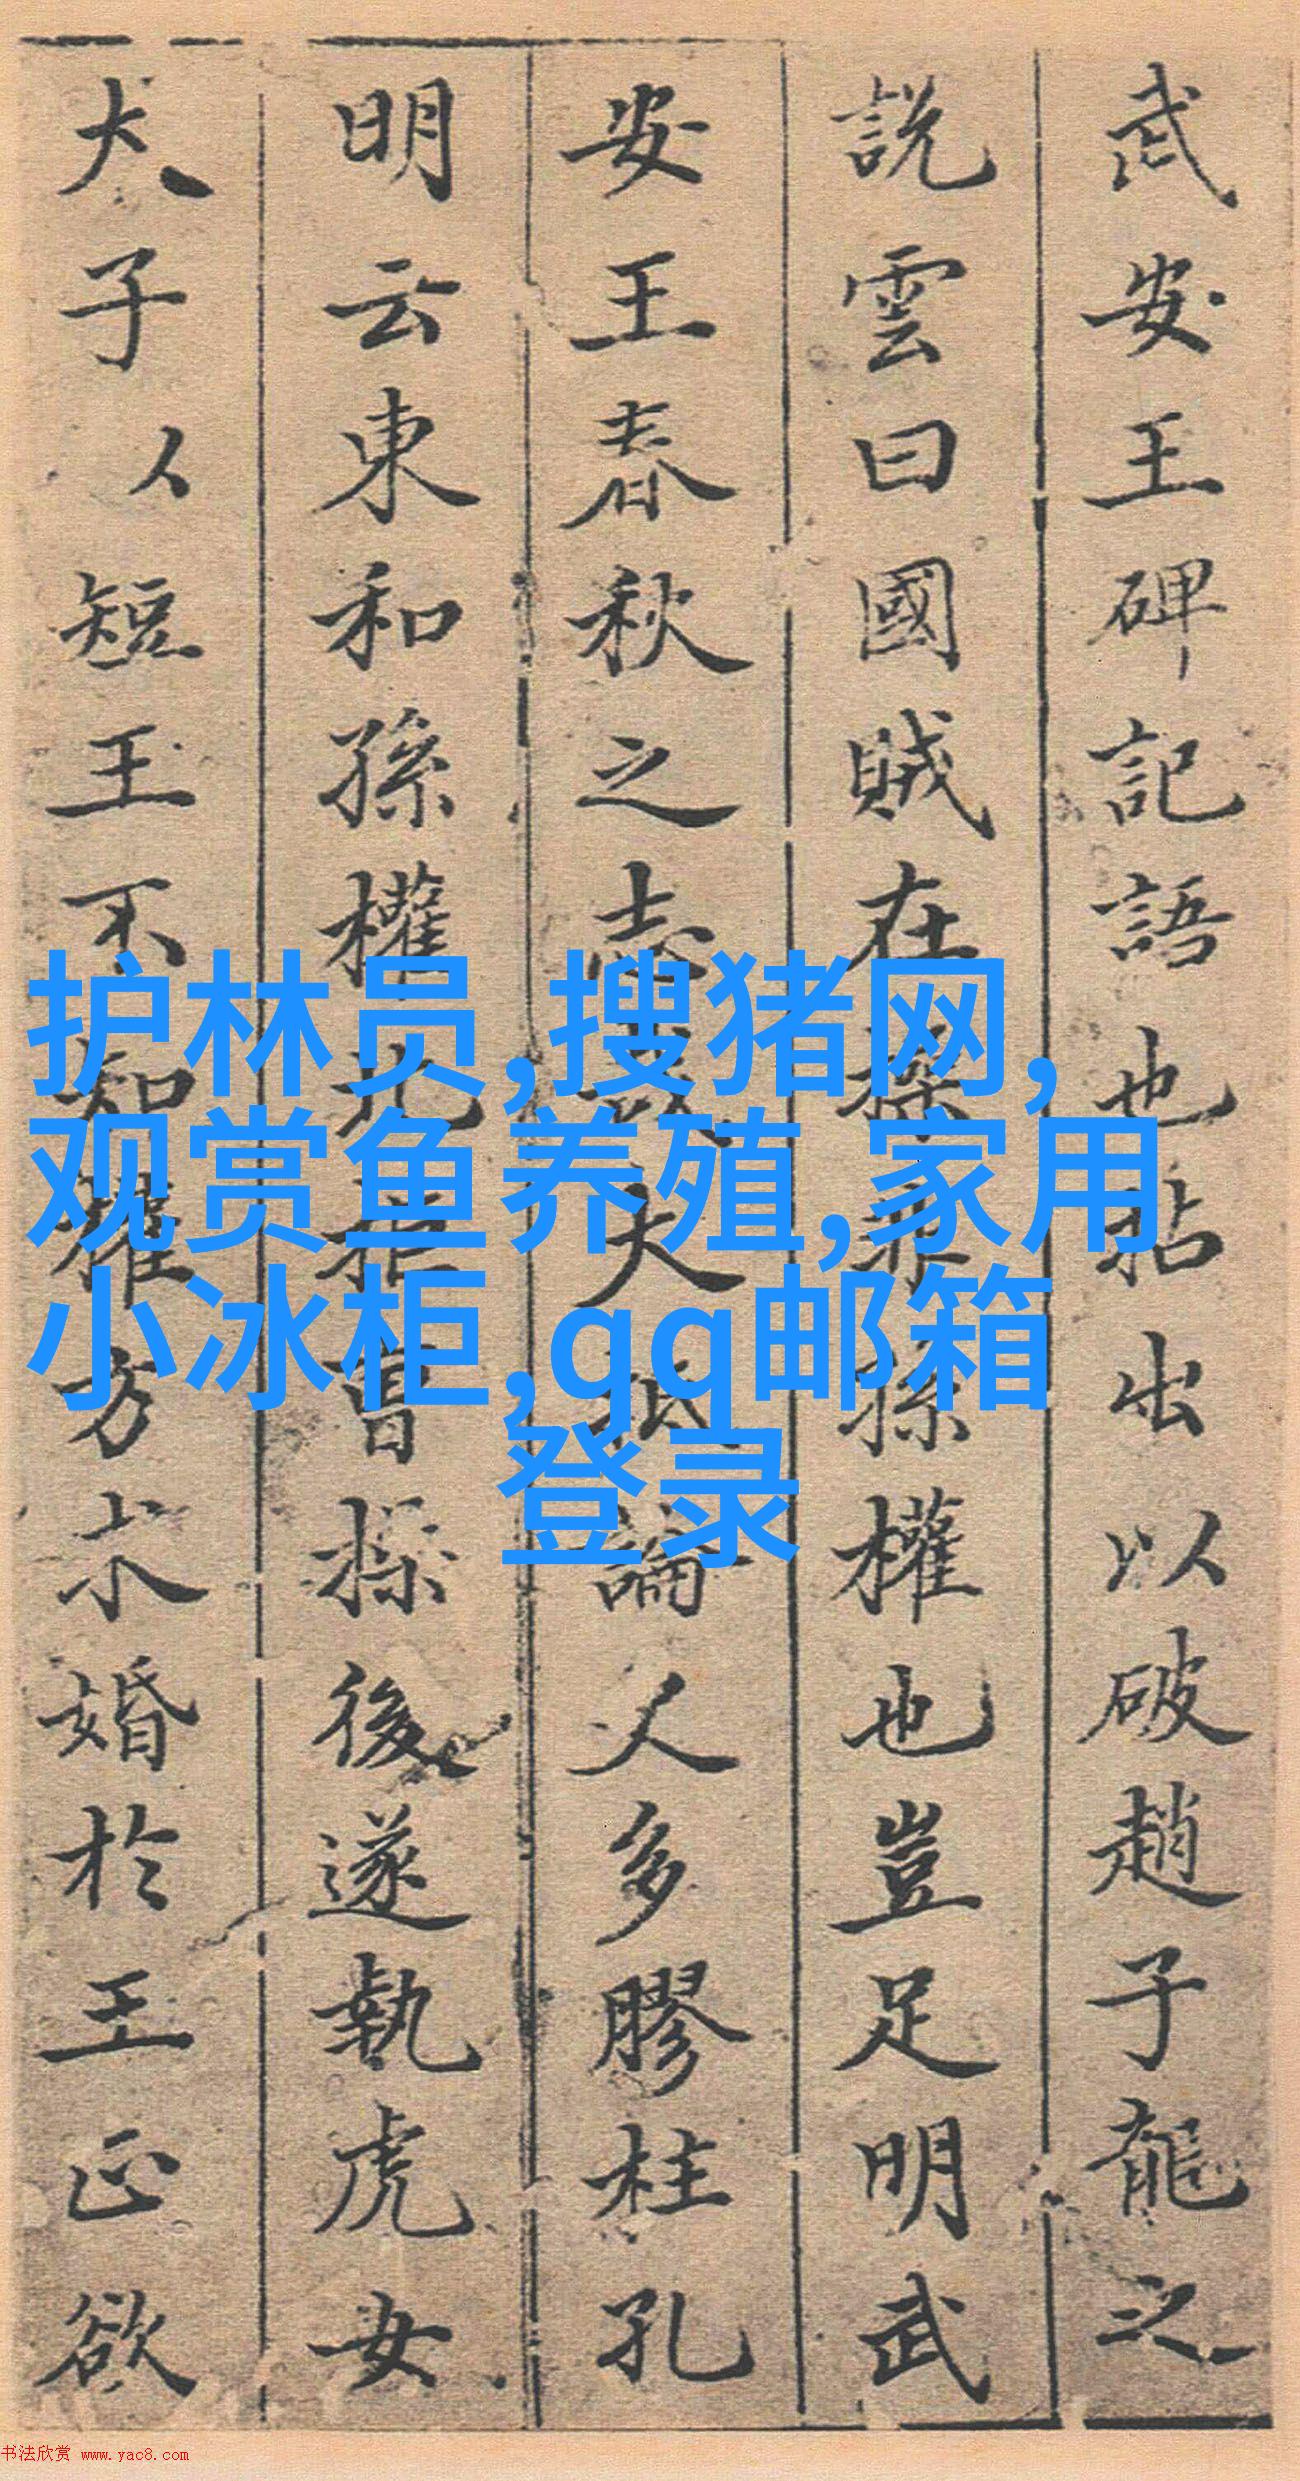 武安王碑記語也拈出以破趙子龍之
說雲曰國賊在操非孫權也豈足明武
安王春秋之志哉大抵論人多膠柱孔
明云東和孫權北拒曹操後遂執虎女
犬子以短王不知權方求婚於王正欲
护林员,搜猪网,
观赏鱼养殖,家用
小冰柜,qq邮箱
登录
书法欣赏 www.yac8.com